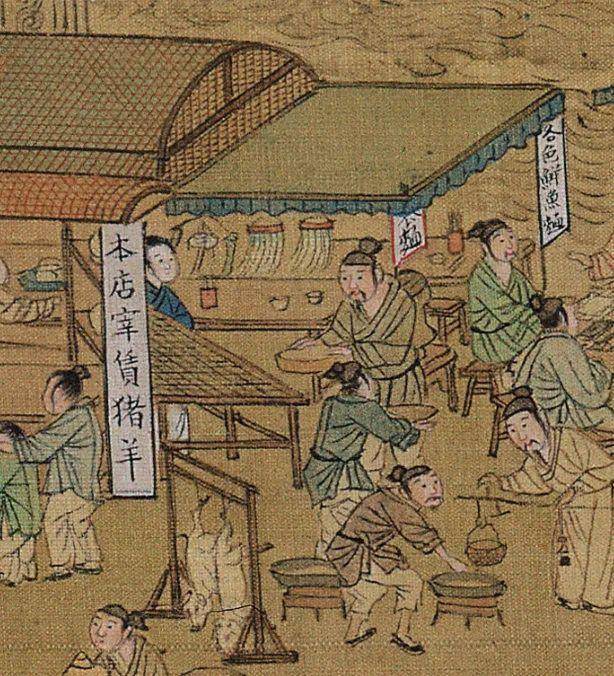 各色鮮魚麵
本店宰賃猪羊